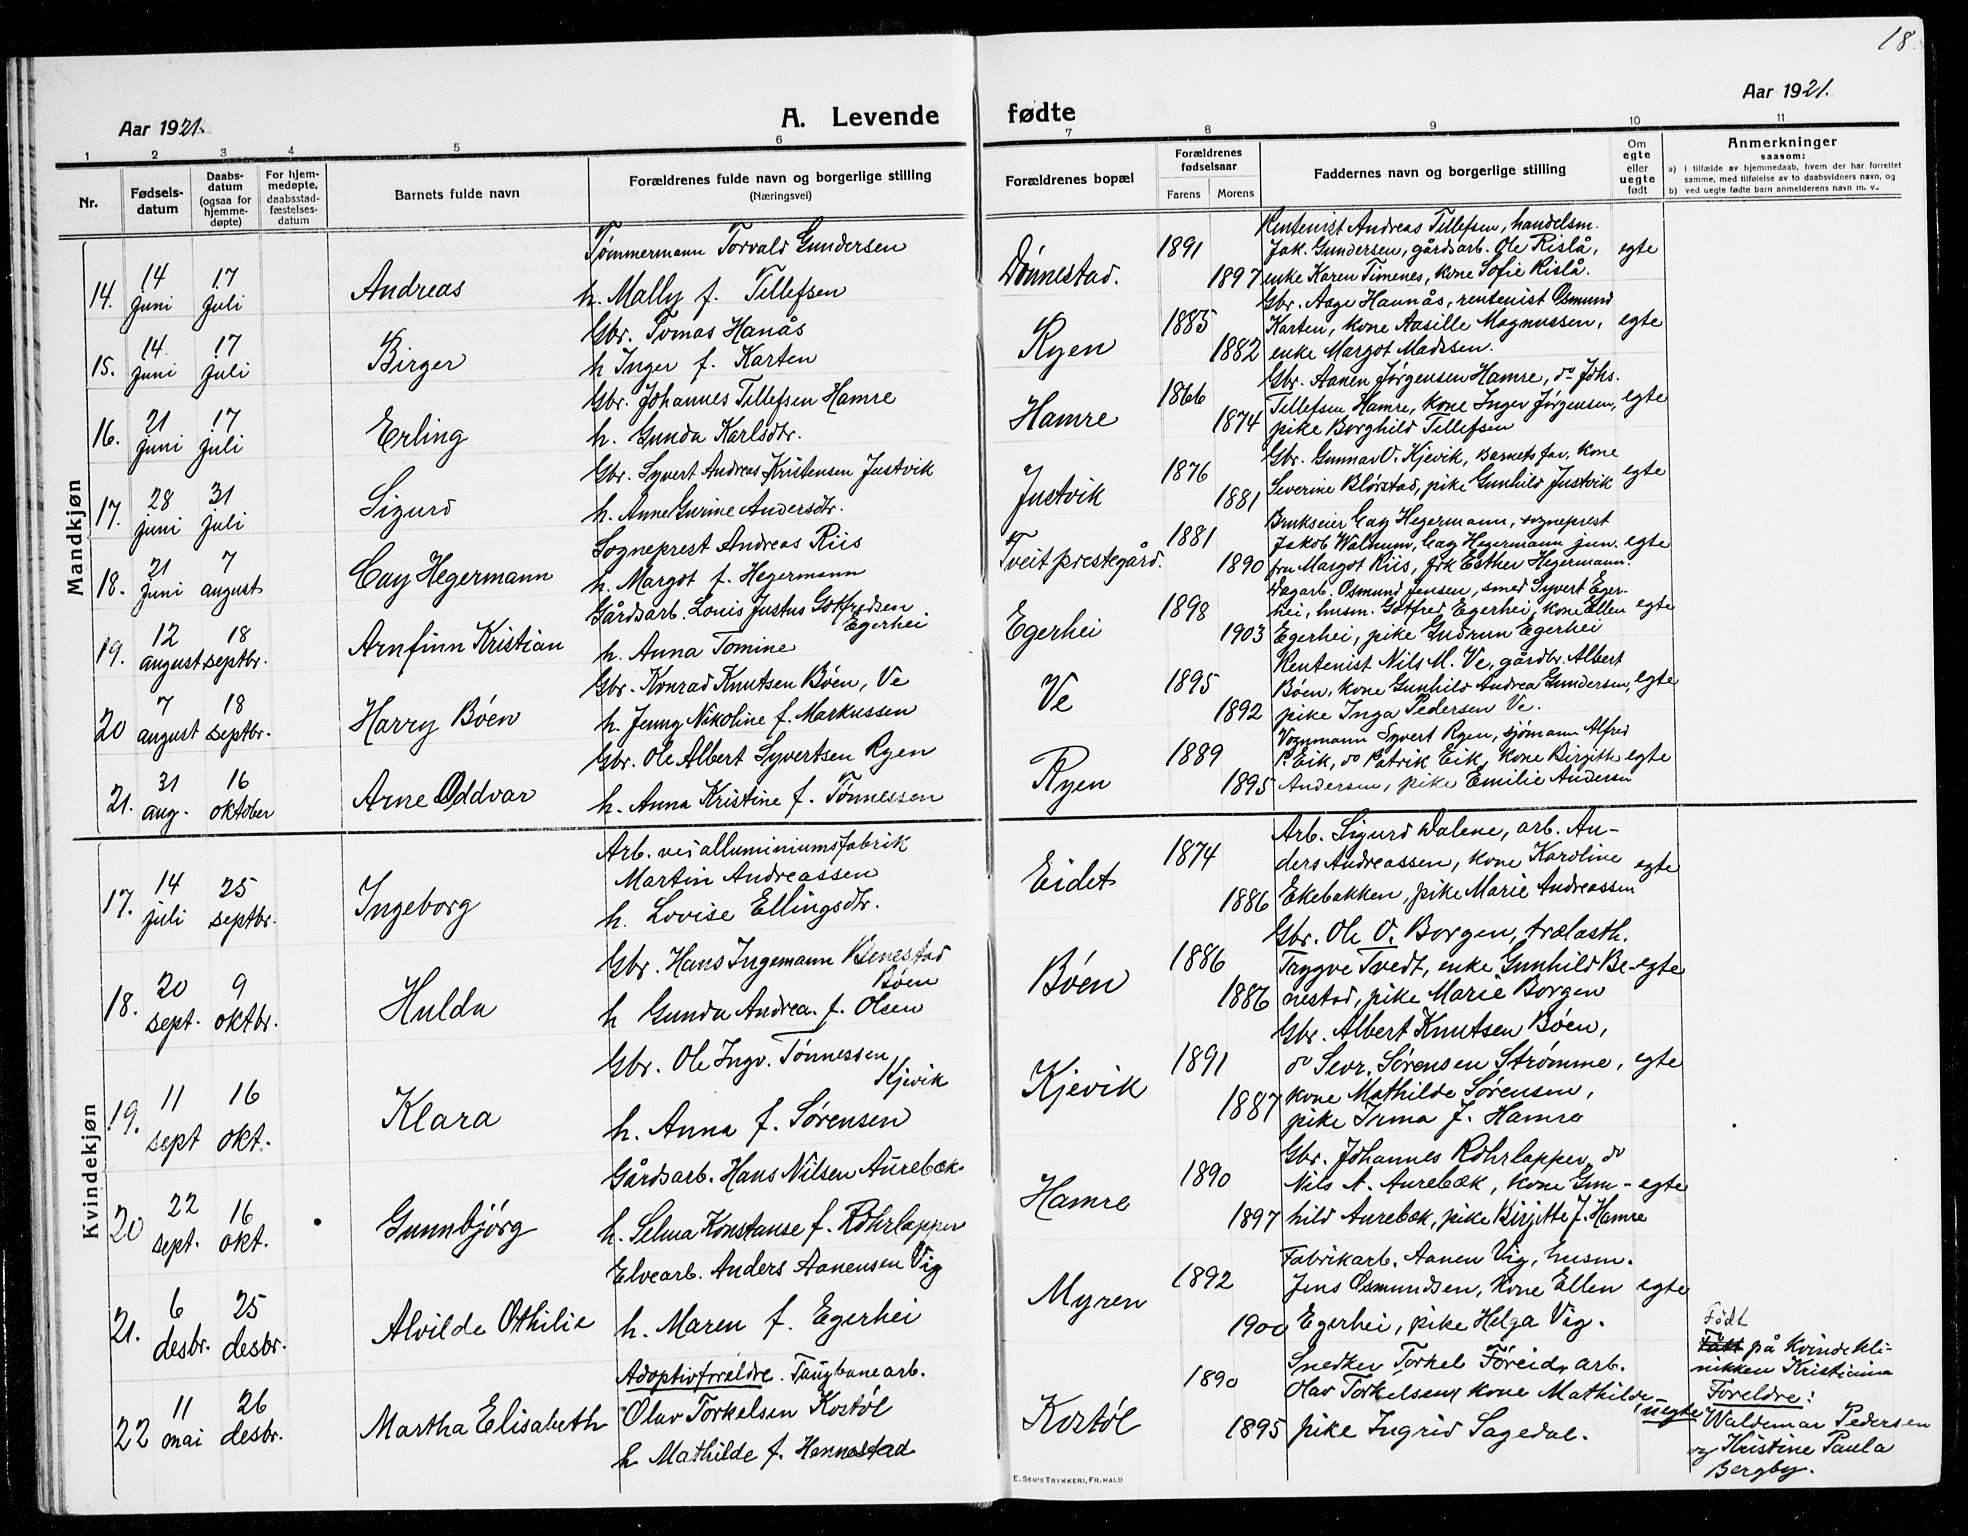 18
Aar 1921.
A. Levende fødte
Aar 1921.
1 2 3 4 5 6 7 8 9 10 11
Nr.
Fødsels-
datum
Daabs-
datum
(ogsaa for
hjemme-
døpte)
For hjem-
medøpte,
daabsstad-
fæstelses-
datum
Barnets fulde navn
Forældrenes fulde navn og borgerlige stilling
(Næringsvei)
Forældrenes bopæl
Forældrenes
fødselsaar
Farens Morens
Faddernes navn og borgerlige stilling
Om
egte
eller
uegte
født
Anmerkninger
saasom:
a) i tilfælde av hjemmedaab, hvem der har forrettet
samme, med tilføielse av to daabsvidners navn, og
b) ved uegte fødte barn anmelderens navn m. v.
Mandkjøn
14. 14 juni 17 juli Andreas
Tømmermann Torvald Gundersen
h. Mally f. Tillefsen
Dønnestad. 1891 1897
Rentenist Andreas Tillefsen, handelsm.
Jak. Gundersen, gårdsarb. Ole Rislå,
enke Karen Timenes, kone Sofie Rislå.
egte
15. 14. juni 17 juli Birger
Gbr. Tomas Hanås
h Inger f. Karten
Ryen 1885 1882
Gbr. Aage Haunås, rentenist Osmund
Karten, kone Aasille Magnussen,
enke Margot Madssen.
egte
16. 21 juni 17 juli Erling
Gbr. Johannes Tillefsen Hamre
h. Gunda Karlsdtr.
Hamre 1866 1874
Gbr. Aanen Jørgensen Hamre, do Johs.
Tillefsen Hamre, kone Inger Jørgensen,
pike Borghild Tillefsen
egte
17. 28 juni 31 juli Sigurd
Gbr. Syvert Andreas Kristensen Justvik
h. Anne Gurine Andersdtr.
Justvik 1876 1881
Gbr. Gunnar O. Kjevik, Barnets far, kone
Severine Blørstad, pike Gunhild Justvik
egte
18. 21 juni 7 august Cay Hegermann
Sogneprest Andreas Riis
h. Margot f. Hegermann
Tveit prestegård. 1881 1890
Brukseier Cay Hegermann, sogneprest
Jakob Walnum, Cay Hegermann jun.
fru Margot Riis, frk Esther Hegermann.
egte
19. 12 august 18 septbr. Arnfinn Kristian
Gårdsarb. Louis Justus Gotfredsen
Egerhei.
h. Anna Tomine
Egerhei 1898 1903
Dagarb. Osmund Jensen, smed Syvert Eger-
hei, husm. Gotfred Egerhei, kone Ellen
Egerhei, pike Gudrun Egerhei
egte
20 7 august 18 septbr. Harry Bøen
Gbr. Konrad Knutsen Bøen, Ve
h. Jenny Nikoline f. Markussen
Ve 1895 1892
Rentenist Nils M. Ve, gårdbr. Albert
Bøen, kone Gunhild Andrea Gundersen,
pike Inga Pedersen Ve.
egte
21. 31 aug. 16 oktober Arne Oddvar
Gbr. Ole Albert Syvertsen Ryen
h. Anna Kristine f. Tønnessen
Ryen 1889 1895
Vognmann Syvert Ryen, sjømann Alfred
P. Eik, do Patrik Eik, kone Birgith
Andersen, pike Emilie Andersen
egte
Kvindekjøn
17. 14 juli 25 septbr. Ingeborg
Arb. ved alluminiumsfabrik
Martin Andreassen
h. Lovise Ellingsdtr.
Eidet 1874 1886
Arb. Sigurd Dalene, arb. An-
ders Andreassen, kone Karoline
Ekebakken, pike Marie Andreassen
egte
18. 20 sept. 9 oktbr. Hulda
Gbr. Hans Ingemann Benestad
Bøen
h Gunda Andrea. f. Olsen
Bøen 1886 1886
Gbr. Ole O. Borgen, trælasth.
Trygve Tvedt, enke Gunhild Be-
nestad, pike Marie Borgen
egte
19. 11 sept 16 okt. Klara
Gbr. Ole Ingv. Tønnessen
Kjevik
h. Anna f. Sørensen
Kjevik 1891 1887
Gbr. Albert Knutsen Bøen,
do Sevr. Sørensen Strømme,
kone Mathilde Sørensen,
pike Irma J. Hamre
egte
20 22 sept. 16 okt. Gunnbjørg
Gårdsarb. Hans Nilsen Aurebæk.
h. Selma Konstanse f. Røhrlapper
Hamre 1890 1897
Gbr. Johannes Røhrlapper, do
Nils A. Aurebæk, kone Gun-
hild Aurebæk, pike Birgitte J. Hamre
egte
21. 6 desbr. 25 desbr. Alvilde Othilie
Elvearb. Anders Aanensen Vig
h. Maren f. Egerhei
Myren 1892 1900
Fabrikarb. Aanen Vig, husm.
Jens Osmundsen, kone Ellen
Egerhei, pike Helga Vig.
egte
22 11 mai 26 desbr. Martha Elisabeth
Adoptivforeldre. Taugbanearb.
Olav Torkelsen Kostøl
h Mathilde f. Hennestad
Kostøl 1890 1895
Snedker Torkel Føreid, arb.
Olav Torkelsen, kone Mathilde
pike Ingrid Sagedal.
uegte
Født
på Kvindekli-
nikken Kristiania
Foreldre:
Waldemar Pedersen
og Kristine Paula
Bergby.
E. SEM'S TRYKKERI, FR.HALD